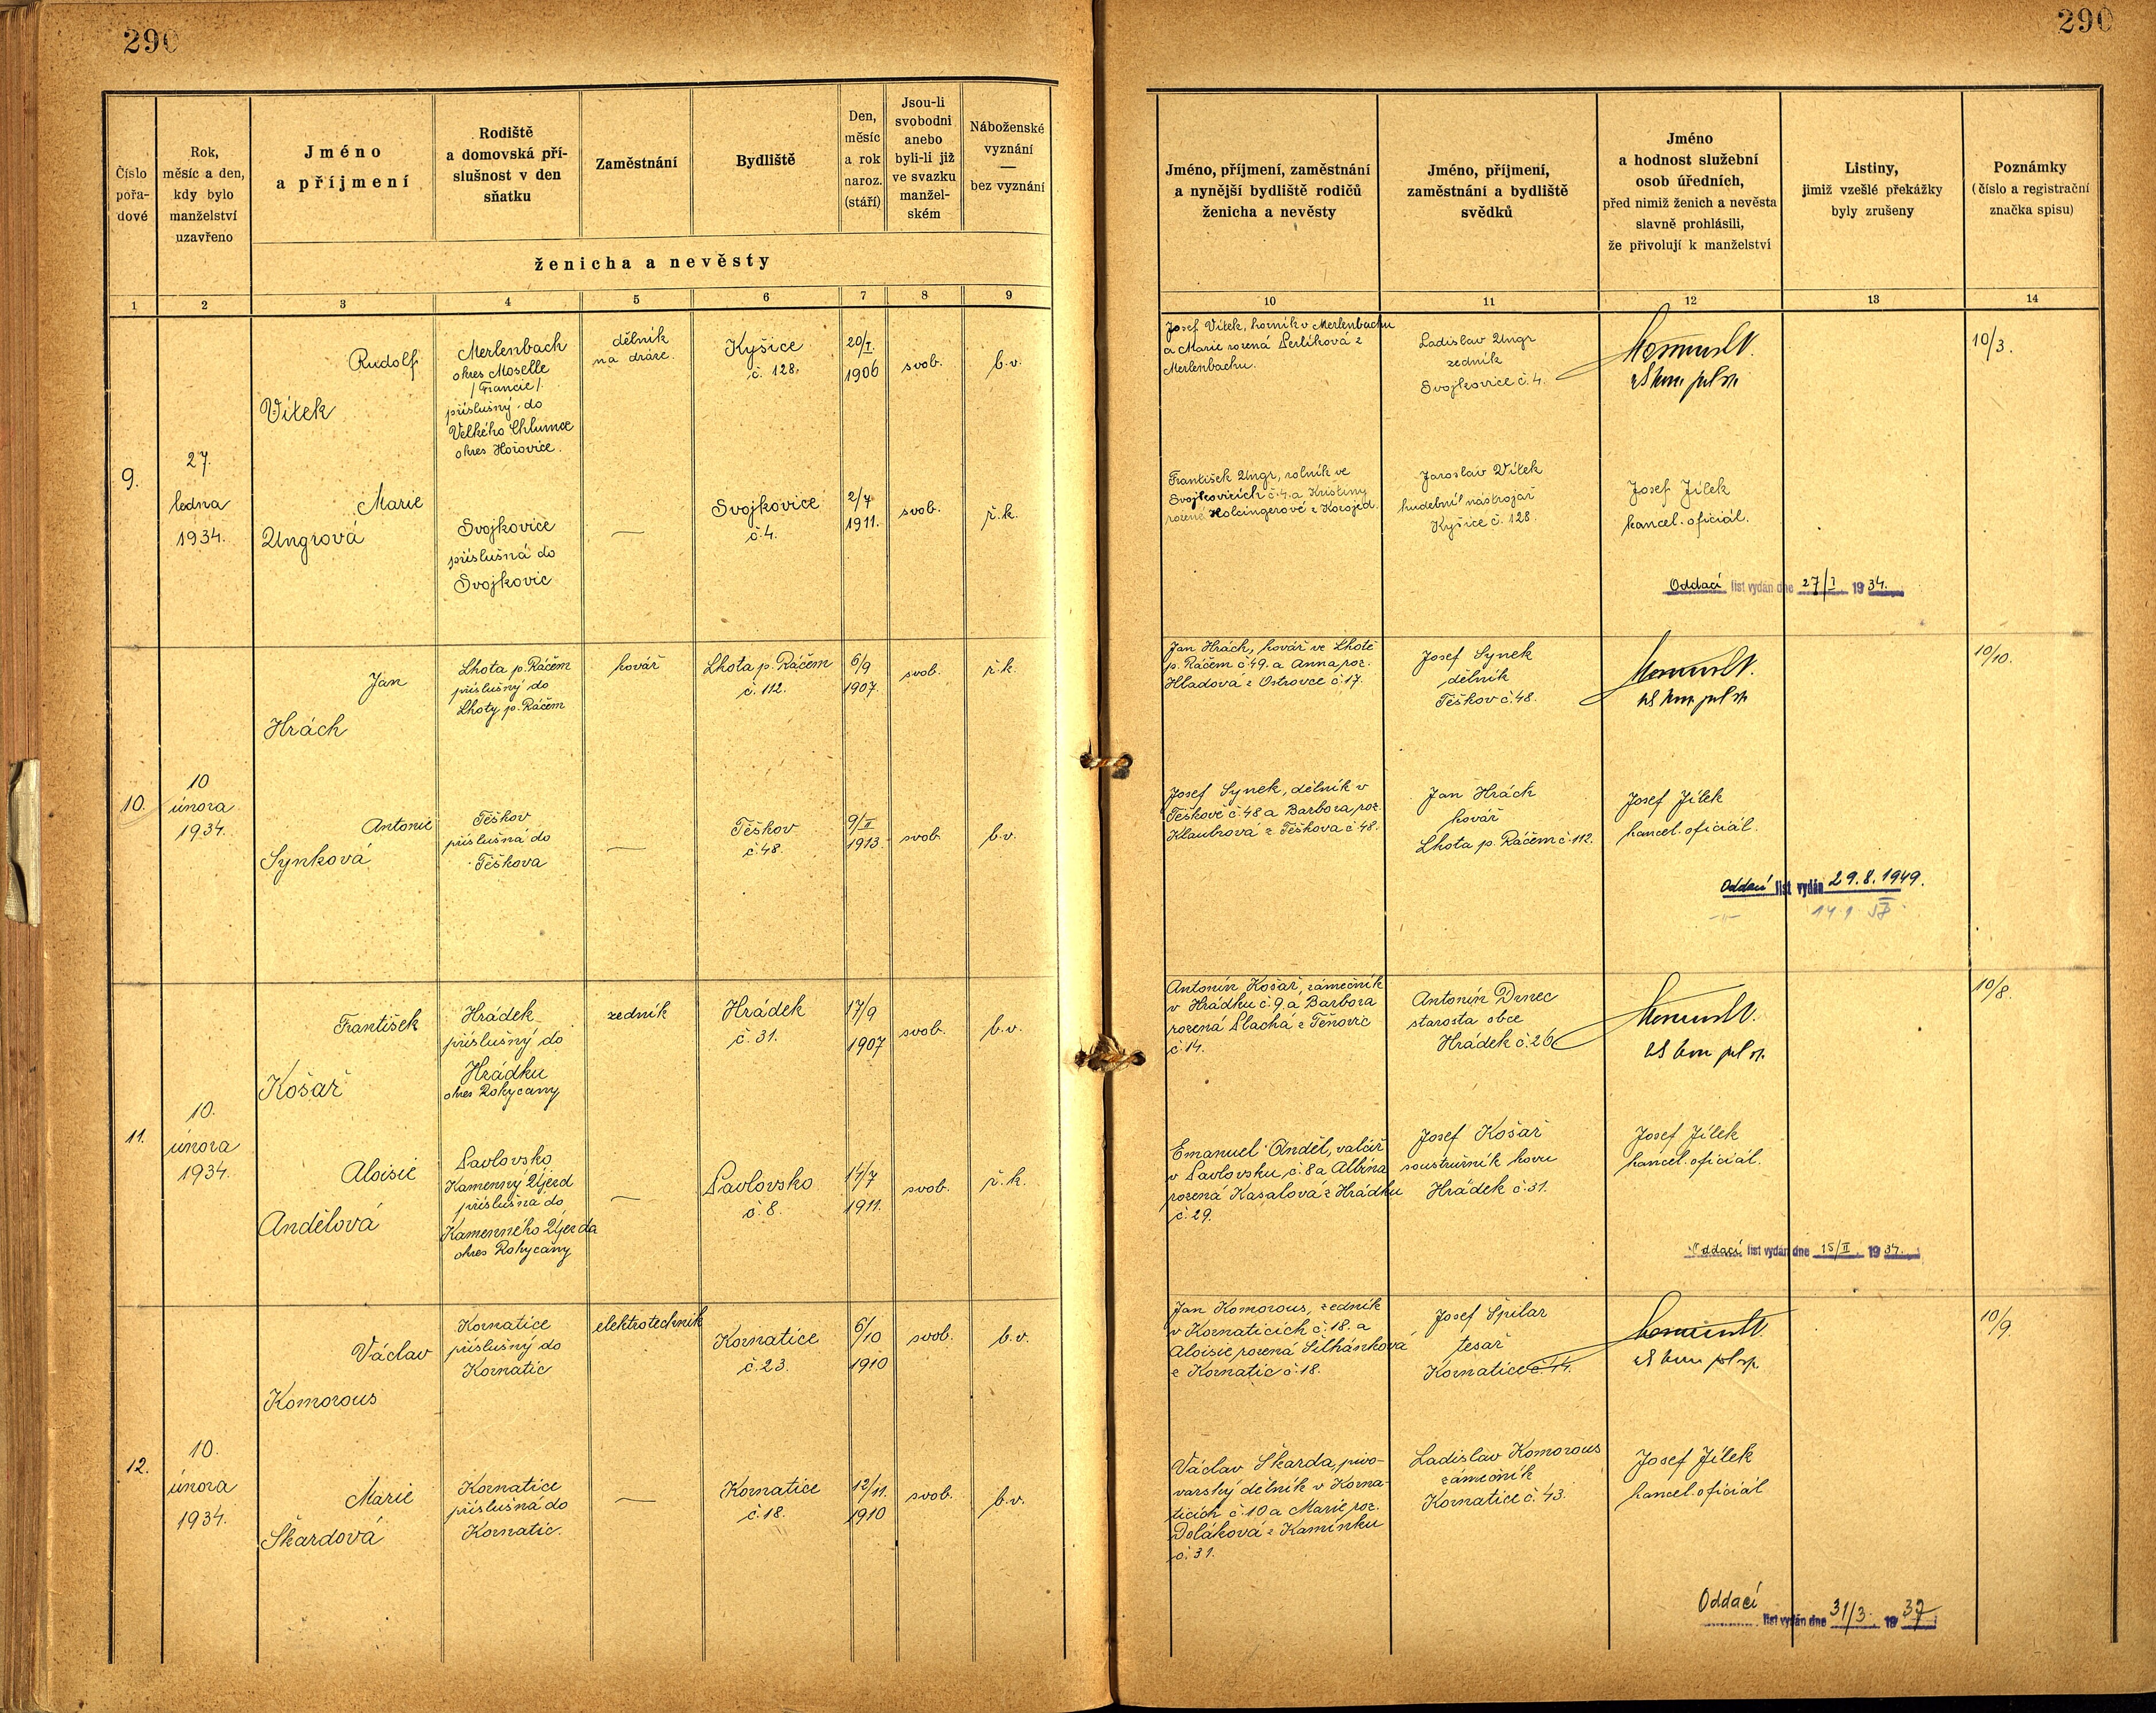 290
290
Číslo pořa-dové
Rok, měsíc a den, kdy bylo manželství uzavřeno
Jméno a příjmení
Rodiště a domovská pří-slušnost v den sňatku
Zaměstnání
Bydliště
Den, měsíc a rok naroz. (stáří)
Jsou-li svobodni anebo byli-li již ve svazku manžel-ském
Náboženské vyznání — bez vyznání
ženicha a nevěsty
Jméno, příjmení, zaměstnání a nynější bydliště rodičů ženicha a nevěsty
Jméno, příjmení, zaměstnání a bydliště svědků
Jméno a hodnost služební osob úředních, před nimiž ženich a nevěsta slavně prohlásili, že přivolují k manželství
Listiny, jimiž vzešlé překážky byly zrušeny
Poznámky (číslo a registrační značka spisu)
1 2 3 4 5 6 7 8 9 10 11 12 13 14
9.
27.
ledna
1934.
Rudolf
Vítek
Merlenbach
okres Moselle
/Francie/.
příslušný do
Velkého Chlumce
okres Hořovice.
dělník
na dráze.
Kyšice
č. 128.
20/I.
1906
svob.
b.v.
Josef Vítek, horník v Merlenbachu
a Marie rozená Perlíková z
Merlenbachu.
Ladislav Ungr
zedník
Svojkovice č. 4.
10/3.
Marie
Ungrová
Svojkovice
příslušná do
Svojkovic
—
Svojkovice
č. 4.
2/7
1911.
svob.
ř.k.
František Ungr, rolník ve
Svojkovicích č. 4. a Kristiny
rozené Holcingerové z Kozojed.
Jaroslav Vítek
hudební nástrojař
Kyšice č. 128.
Josef Jílek
kancel. oficiál.
Oddací list vydán dne 27/I 1934.
10.
10
února
1934.
Jan
Hrách
Lhota p. Ráčem
příslušný do
Lhoty p. Ráčem
kovář
Lhota p. Ráčem
č. 112.
6/9
1907.
svob.
ř.k.
Jan Hrách, kovář ve Lhotě
p. Ráčem č. 49. a Anna roz.
Hladová z Ostrovce č. 17.
Josef Synek
dělník
Těškov č. 48.
10/10.
Antonie
Synková
Těškov
příslušná do
Těškova
—
Těškov
č. 48.
9/II
1913.
svob.
b.v.
Josef Synek, dělník v
Těškově č. 48 a Barbora, roz.
Klaubrová z Těškova č. 48.
Jan Hrách
kovář
Lhota p. Ráčem č. 112.
Josef Jílek
kancel. oficiál.
Oddací list vydán 29.8.1949.
11.
10.
února
1934.
František
Košař
Hrádek
příslušný do
Hrádku
okres Rokycany
zedník
Hrádek
č. 31.
17/9
1907
svob.
b.v.
Antonín Košař, zámečník
v Hrádku č. 9, a Barbora
rozená Plachá z Těnovic
č. 14.
Antonín Drnec
starosta obce
Hrádek č. 26
10/8.
Aloisie
Andělová
Pavlovsko
Kamenný Újezd
příslušná do
Kamenného Újezda
okres Rokycany
—
Pavlovsko
č. 8.
14/7
1911.
svob.
ř.k.
Emanuel Anděl, valcíř
v Pavlovsku, č. 8 a Albína
rozená Kasalová z Hrádku
č. 29.
Josef Košař
soustružník kovu
Hrádek č. 31.
Josef Jílek
kancel. oficiál.
Oddací list vydán dne 15/II 1934.
12.
10.
února
1934.
Václav
Komorous
Kornatice
příslušný do
Kornatic
elektrotechnik
Kornatice
č. 23.
6/10
1910
svob.
b.v.
Jan Komorous, zedník
v Kornaticích č. 18. a
Aloisie rozená Silhánková
z Kornatic č. 18.
Josef Špilar
tesař
Kornatice č. 14.
10/9.
Marie
Škardová
Kornatice
příslušná do
Kornatic.
—
Kornatice
č. 18.
12/11.
1910
svob.
b.v.
Václav Škarda, pivo-
varský dělník v Korna-
ticích č. 10 a Marie roz.
Doláková z Kamínku
č. 31.
Ladislav Komorous
zámečník
Kornatice č. 43.
Josef Jílek
kancel. oficiál
Oddací
list vydán dne 31/3 1937